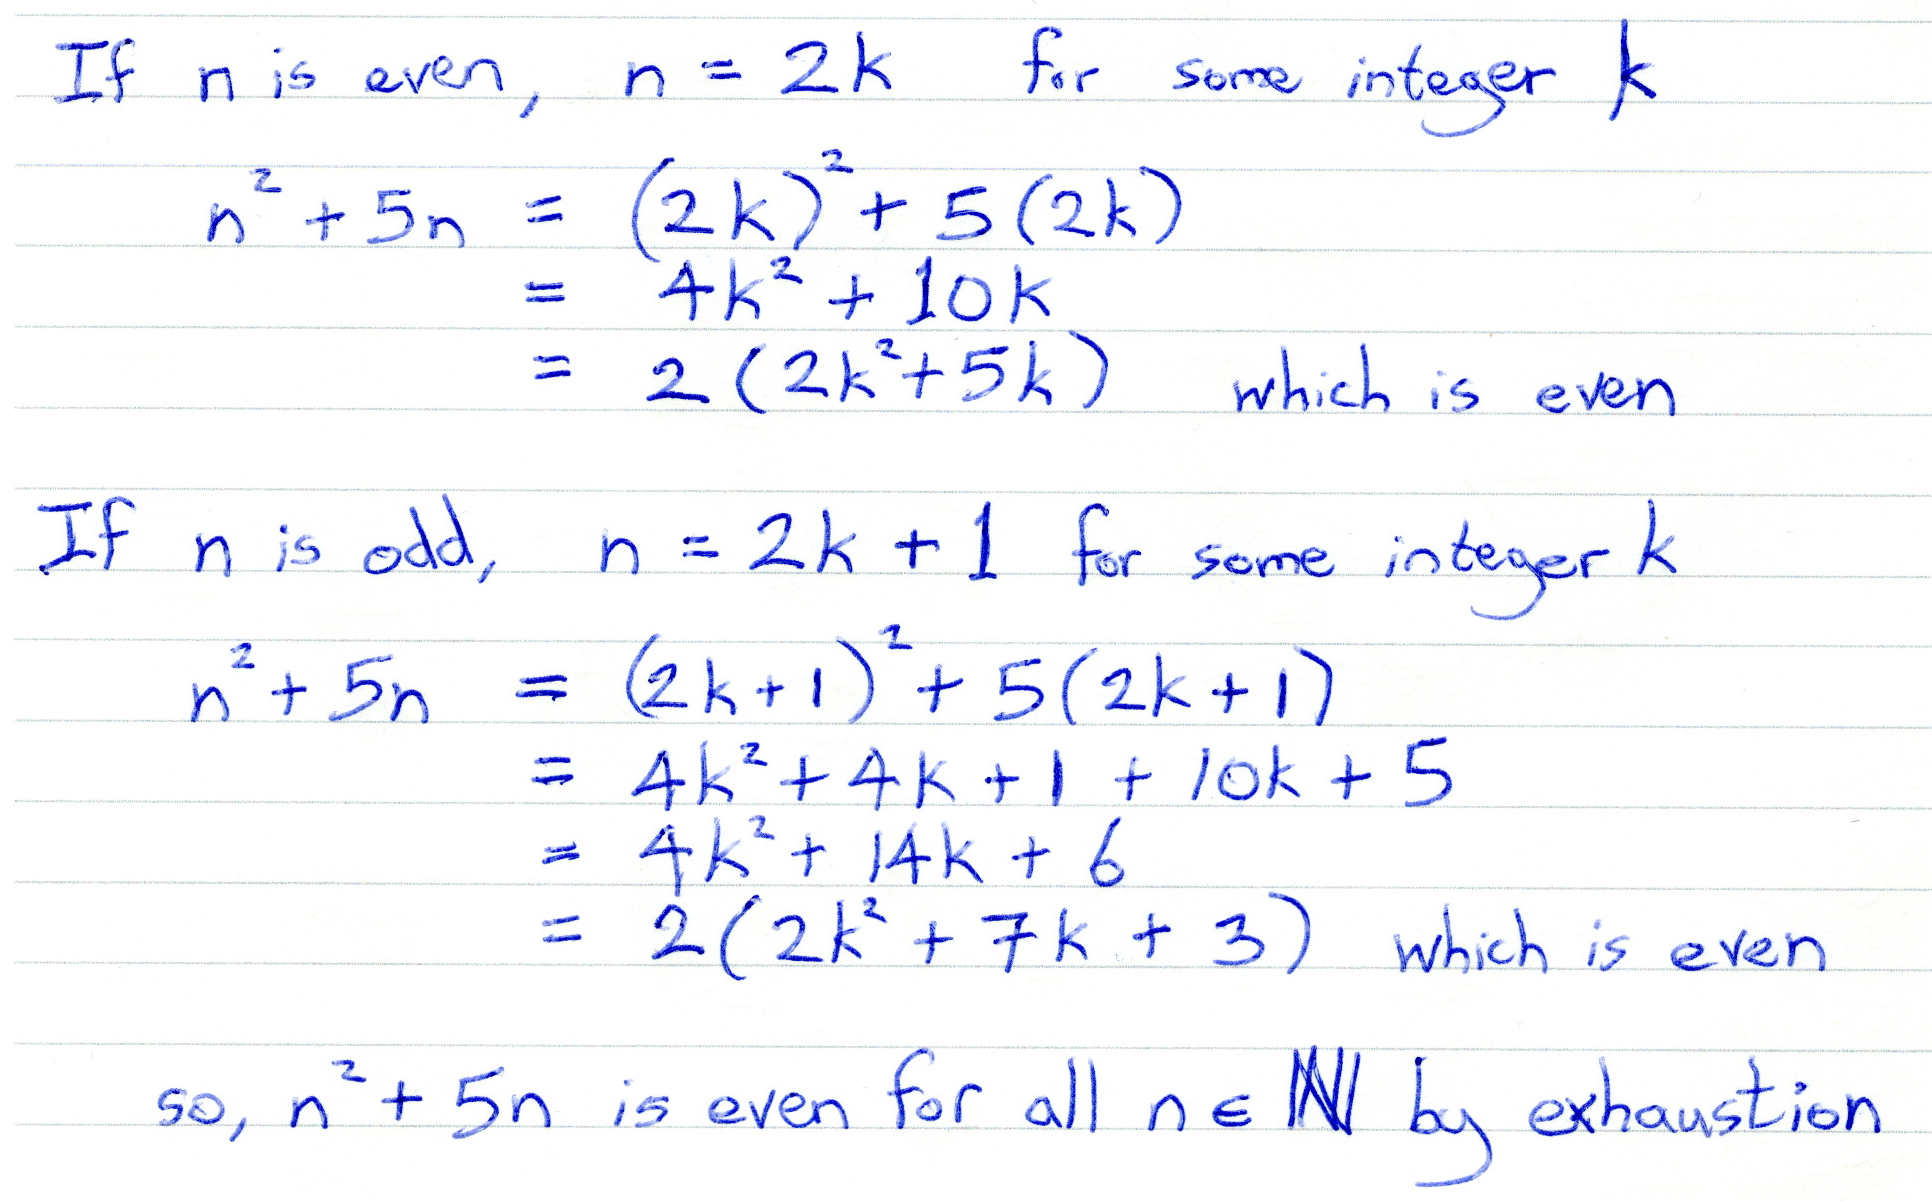 If n is even, n = 2k for some integer k
n² + 5n = (2k)² + 5(2k)
= 4k² + 10k
= 2(2k²+5k) which is even
If n is odd, n = 2k + 1 for some integer k
n² + 5n = (2k+1)² + 5(2k+1)
= 4k² + 4k + 1 + 10k + 5
= 4k² + 14k + 6
= 2(2k² + 7k + 3) which is even
so, n² + 5n is even for all n ∈ ℕ by exhaustion